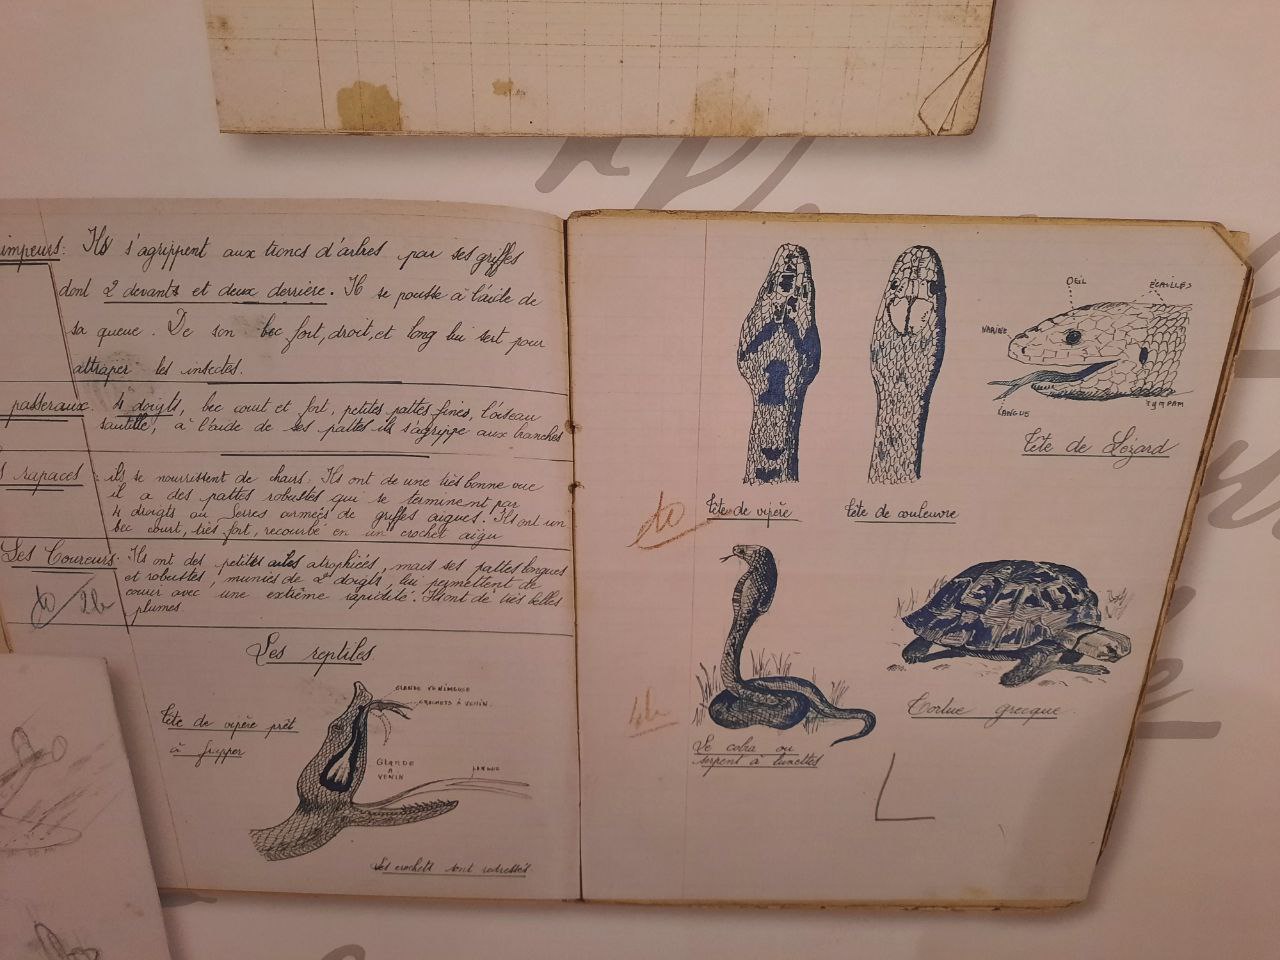 impeurs: Ils s'agrippent aux troncs d'arbres par ses griffes
dont 2 devants et deux derrière. Il se pousse à l'aide de
sa queue. De son bec fort, droit, et long lui sert pour
attraper les insectes.
passeraux. 4 doigts, bec court et fort, petites pattes fines, l'oiseau
sautille, à l'aide de ses pattes ils s'agrippe aux branches
s rapaces : ils se nourrissent de chairs. Ils ont de une très bonne vue
il a des pattes robustes qui se terminent par
4 doigts ou serres armées de griffes aigues. Ils ont un
bec court, très fort, recourbé en un crochet aigu
Les Coureurs: Ils ont des petites ailes atrophiées, mais ses pattes longues
et robustes, munies de 2 doigts, lui permettent de
courir avec une extrême rapidité. Ils ont de très belles
plumes
Les reptiles
Tête de vipère prêt
à frapper
GLANDE VENIMEUSE
CROCHETS À VENIN.
GLANDE
À
VENIN
LANGUE
Les crochets sont redressés
tête de vipère
tête de couleuvre
OEIL
ECAILLES
NARINE
LANGUE
TYMPAM
tête de Lézard
Le cobra ou
serpent à lunettes
Tortue grecque